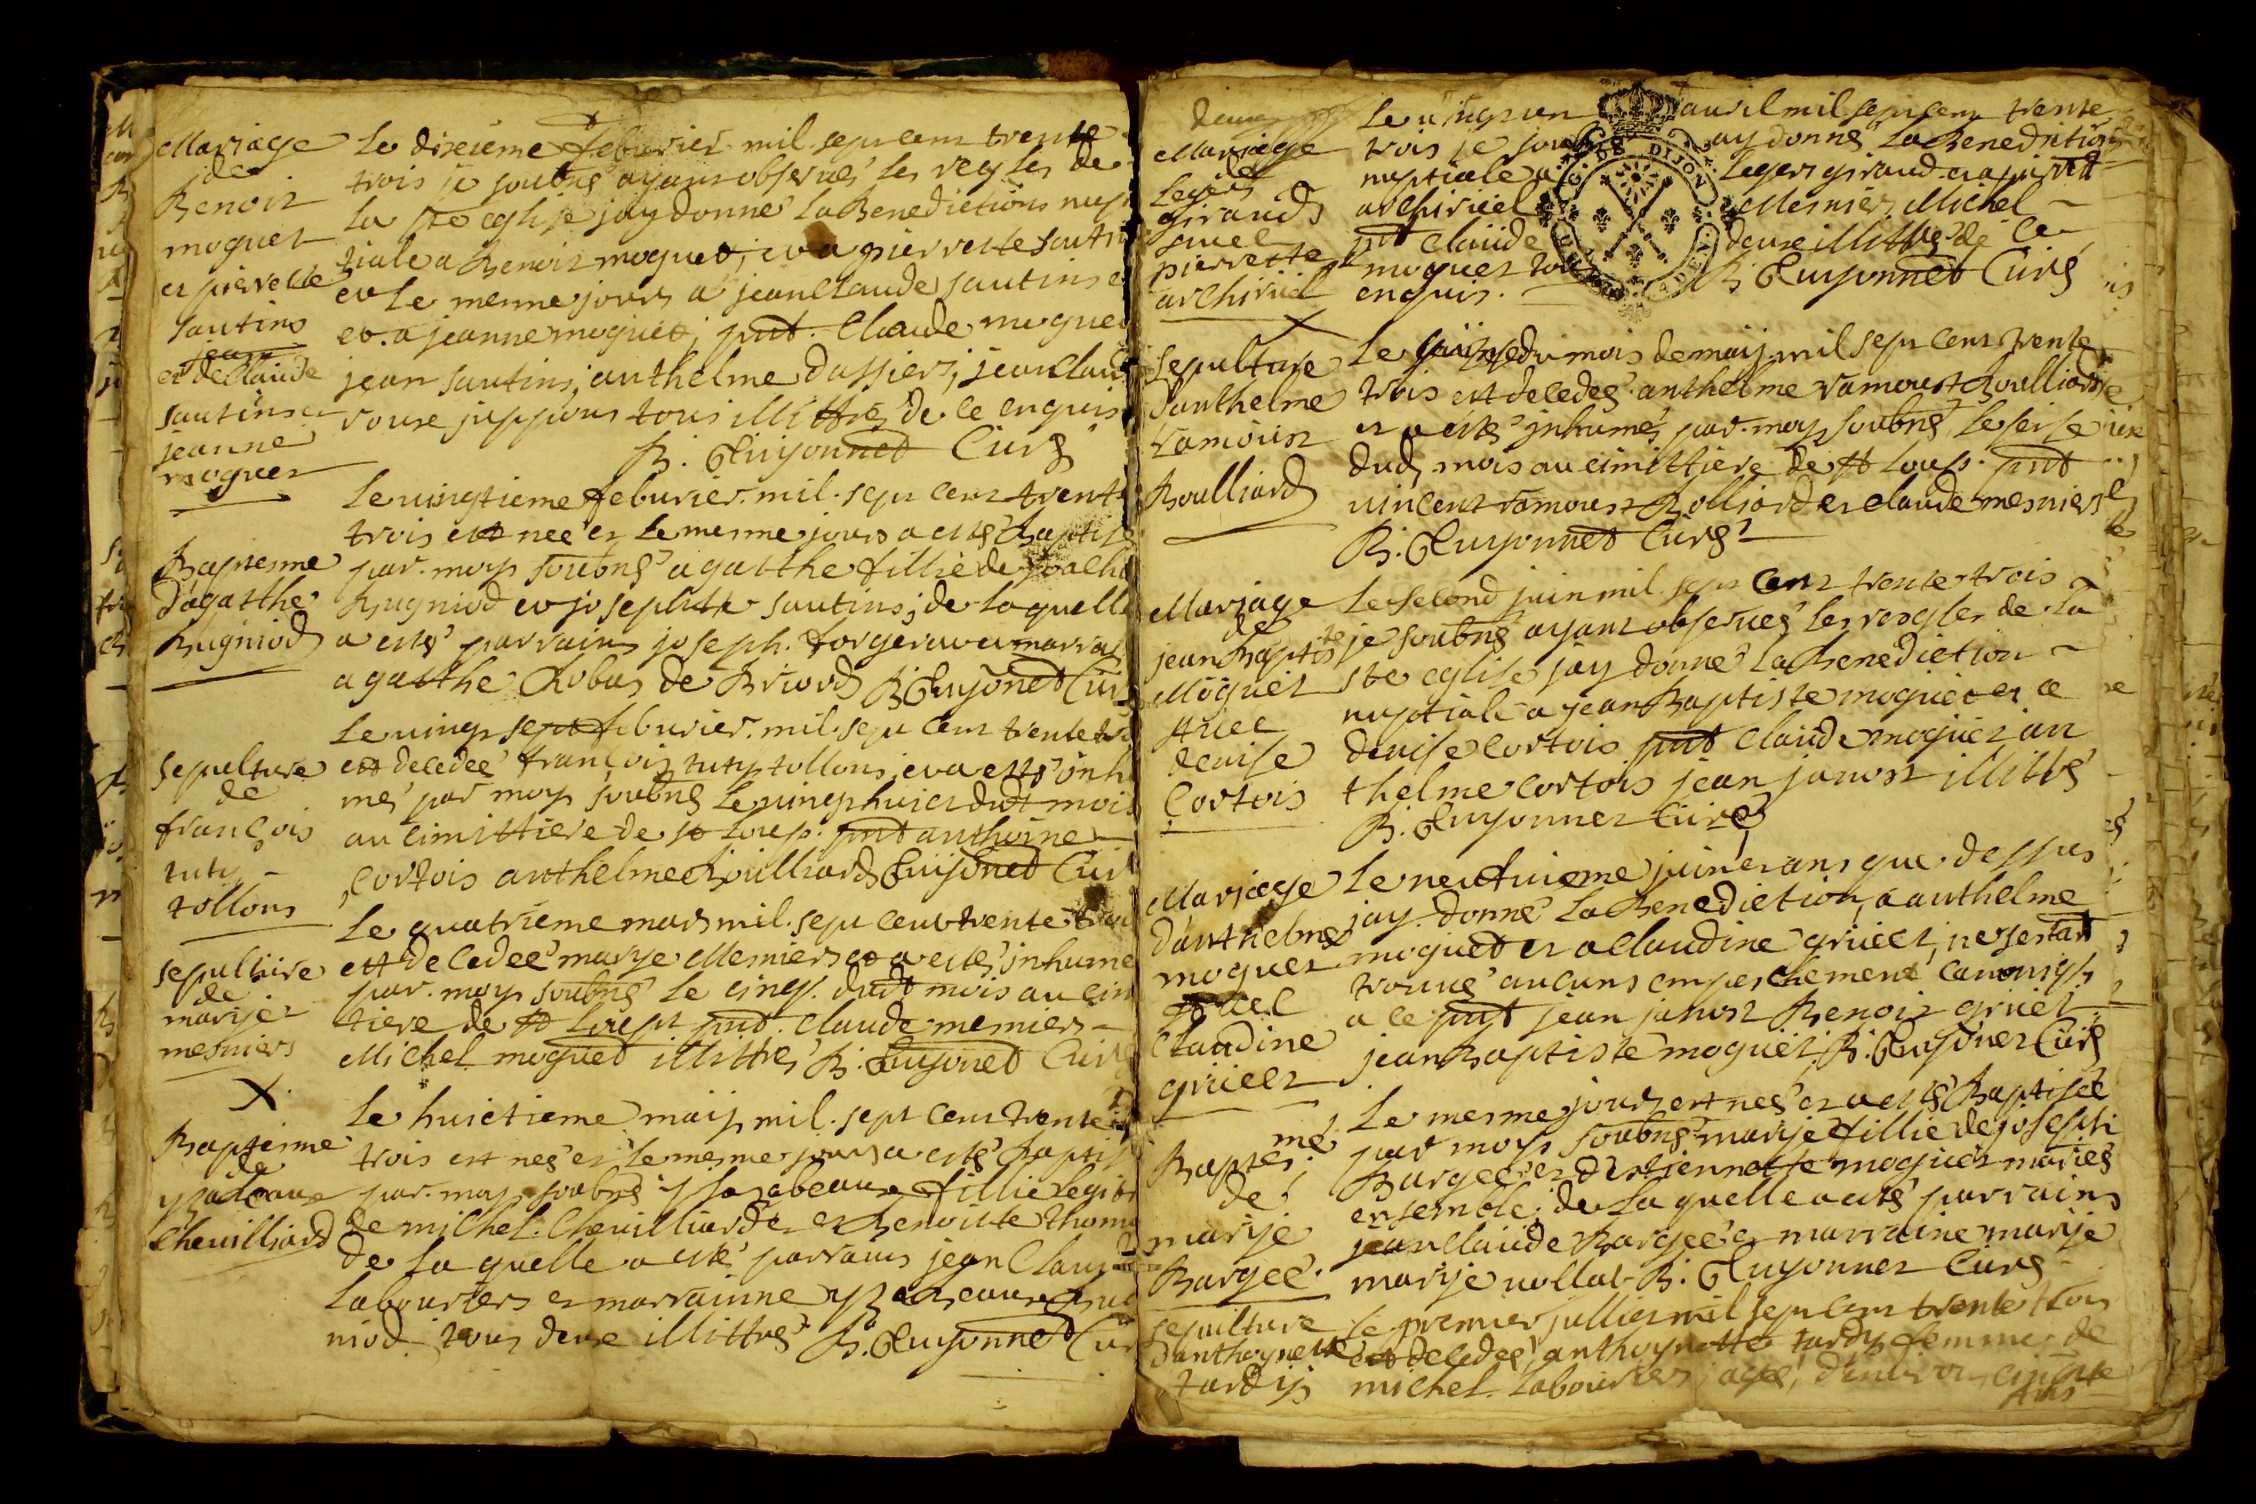 Mariage
de
Benoit
moguet
et pierrette
Sautins
jean
et de Claude
Sautins
jeanne
moguet
Le dixieme feburier mil sept cent trente
trois je soubné ayant observé les regles de
la ste eglise jay donné la Benediction nup
tiale a Benoit moguet, et a pierrette Sautin
et le mesme jours a jean Claude Sautins
et a jeanne moguet, pnt Claude moguet
jean Sautins, anthelme dassiers, jean Claude
tous illittrés de ce enquis
B. Guyonnet Curé
Baptesme
d'agathe
Bugniod
Le vingtieme feburier mil sept cent trente
trois est née et le mesme jours a esté Baptisé
par moy soubné agatthe fillie de
Bugniod et josephte Sautins, de laquelle
a esté parrains joseph forgeret marra
agatthe de Briord B Guyonet Curé
sepulture
de
françois
tuty
tollons
Le vingt sept feburier mil sept cent trente
est decedeé françois tuty tollons, et a esté inhu
mé par moy soubné le vingt huict dudt mois
au cimittiere de st Loup. pnt anthoine
Cortois anthelme Roulliard Guyonet Curé
sepulture
de
marije
mesniers
Le quatrieme mars mil sept cent trente trois
est decedeé marye Mesniers et a esté inhume
par moy soubné le cinq dudt mois au cim
tiere de st Loup pnt Claude mesniers
Michel moguet illittrés B. Guyonet Curé
X
Baptesme
de
Chevilliard
Le huictieme maij mil sept cent trente
trois est neé et le mesme jours a esté Baptis
par moy soubné fillie legit
de michel Chevilliard et Benoitte thom
de la quelle a esté parrains jean Claude
Labouriers et marrainne
niod tous deux illittrés B. Guyonnet Cur
Mariage
de
Legers
giraud
avec
pierrette
archiriel
Le vingt un avril mil sept cent trente
trois je soubné ay donné la Benediction
nuptiale a Legers giraud et a pierrette
archiriel Mesnier Michel
pnt Claude deux illittrés de ce
moguet B Guyonnet Curé
enquis.
G. DE DIJON
X
Sepulture
d'anthelme
ramoust
Roulliard
Le quinze du mois de maij mil sept cent trente
trois est decedeé anthelme ramoust Roulliard
et a esté inhumé par moy soubné le seise
dud mois au cimittiere de st Loup. pnt
vincent ramoust Rolliard et claude mesniers
B. Guyonnet Curé
Mariage
de
jean Baptiste
Moguet
Avec
denise
Cortois
Le second juin mil sept cent trente trois
je soubné ayant observés les regles de la
ste eglise jay donné la Benediction
nuptiale a jean Baptiste moguet et a
denise cortois pnt Claude moguet an
thelme cortois jean janost illittrés
B. Guyonnet Curé
Mariage
d'anthelme
moguet
avec
Claudine
gricet
Le neufuieme juin et ans que dessus
jay donné la Benediction, a anthelme
moguet et a Claudine gricet, ne sestant
trouvé aucuns empeschement canoniqs
a ce pnt jean janost Benoit gricet
jean Baptiste moguet, B. Guyonnet Curé
Baptesme
de
marije
Bargeé
Le mesme jours est neé et a esté Baptiseé
par moy soubné marije fillie de joseph
Bargeé et d'estiennette moguet mariés
ensemble, de la quelle a esté parrains
jean Claude Bargeé et marraine marije
marije B. Guyonnet Curé
sepulture
d'anthoynette
tardij
Le premier julliet mil sept cent trente trois
est decedeé anthoynette tardy femme de
michel Labouriers, ageé d'environ
Ans